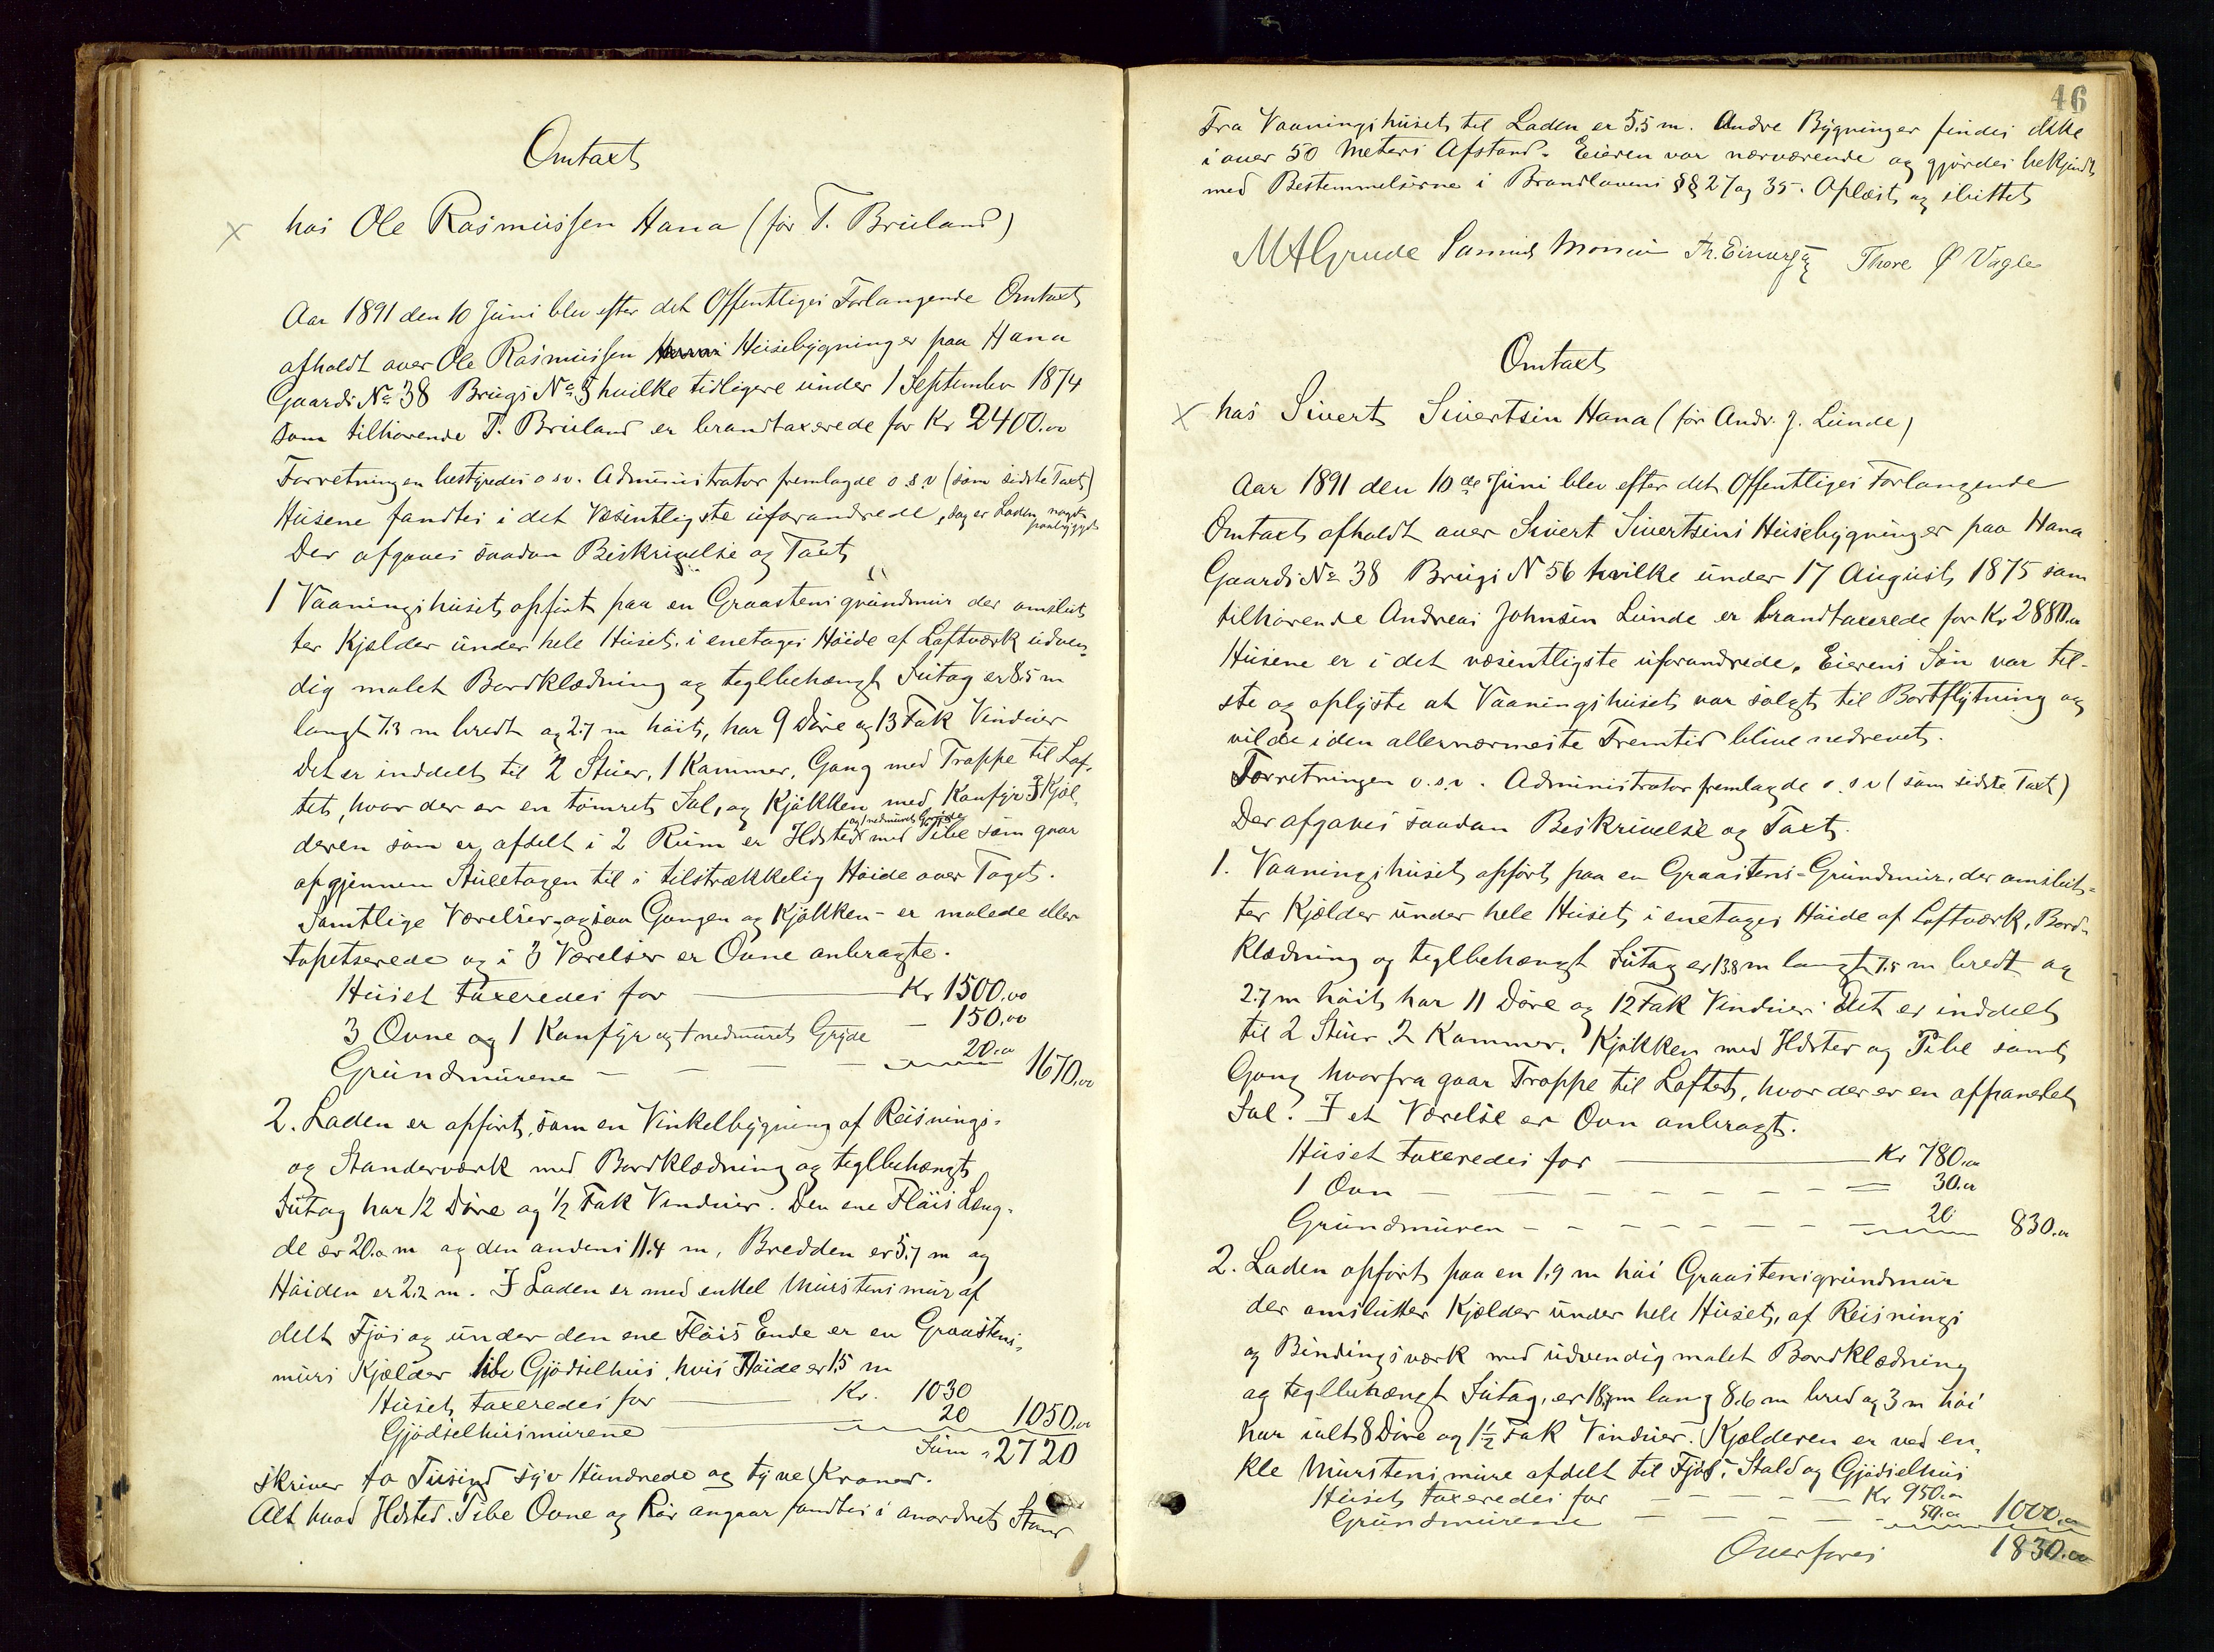 Omtaxt
hos Ole Rasmussen Hana (før T. Brueland)
Aar 1891 den 10 Juni blev efter det Offentliges Forlangende Omtaxt
afholdt over Ole Rasmussen Husebygninger paa Hana
Gaards No 38 Brugs No 5 hvilke tidligere under 1 September 1874
som tilhørende T. Brueland er brandtaxerede for Kr 2400.00
Forretningen bestyredes o sv. Administrator fremlagde o. s. v (som sidste Taxt)
Husene fandtes i det Væsentligste uforandrede, dog er Laden noget paabygget
Der afgaves saadan Beskrivelse og Taxt
1 Vaaningshuset opført paa en Graastens grundmur der omslut
ter Kjælder under hele Huset. i enetages Høide af Loftværk udven-
dig malet Bordklædning og teglbehængt Sutag er 8.5 m
langt 7.3 m bredt og 2.7 m høit, har 9 Døre og 13 Fak Vinduer
Det er inddelt til 2 Stuer, 1 Kammer, Gang med Trappe til Lof-
tet, hvor der er en tømret Sal, og Kjøkken med Komfyr I Kjæl-
deren som er afdelt i 2 Rum er Ildsted og 1 nedmuret Gryde med Pibe som gaar
op gjennem Stueetagen til i tilstrækkelig Høide over Taget.
Samtlige Værelser, ogsaa Gangen og Kjøkken - er malede eller
tapetserede og i 3 Værelser er Ovne anbragte.
Huset taxeredes for Kr 1500.00
3 Ovne og 1 Komfyr og 1 nedmuret Gryde - 150.00
Grundmurene - - - - 20.00 1670.00
2. Laden er opført, som en Vinkelbygning af Reisnings-
og Standerværk med Bordklædning og teglbehængt
Sutag har 12 Døre og 1/2 Fak Vinduer. Den ene Fløis Læng-
de er 20.0 m og den andens 11.4 m, Bredden er 5.7 m og
Høiden er 2.2 m. I Laden er med enkel Murstens mur af
delt Fjøs og under den ene Fløis Ende er en Graastens-
murs Kjælder til Gjødselhus, hvis Høide er 1.5 m
Huset taxeredes for Kr. 1030
Gjødselhusmurene 20 1050.00
Sum - 2720
skriver to Tusind syv Hundrede og tyve Kroner.
Alt hvad Ildsted. Pibe Ovne og Rør angaar fandtes i anordnet Stand
46
Fra Vaaningshuset til Laden er 5.5 m. Andre Bygninger findes ikke
i over 50 Meters Afstand. Eieren var nærværende og gjordes bekjendt
med Bestemmelserne i Brandlovens §§ 27 og 35. Oplæst og sluttet
M A Grude Thore Ø Vagle
Omtaxt
hos Sivert Sivertsen Hana (før Andr. J. Lunde)
Aar 1891 den 10de Juni blev efter det Offentliges Forlangende
Omtaxt afholdt over Sivert Sivertsens Husebygninger paa Hana
Gaards No 38 Brugs N 56 hvilke under 17 August 1875 som
tilhørende Andreas Johnsen Lunde er brandtaxerede for Kr 2880.00
Husene er i det væsentligste uforandrede. Eierens Søn var til-
ste og oplyste at Vaaningshuset var solgt til Bortflytning og
vilde i den allernærmeste Fremtid blive nedrevet.
Forretningen o. s. v. Administrator fremlagde o. s v (som sidste Taxt)
Der afgaves saadan Beskrivelse og Taxt.
1. Vaaningshuset opført paa en Graastens-Grundmur, der omslut-
ter Kjælder under hele Huset, i enetages Høide af Loftværk, Bord-
klædning og teglbehængt Sutag er 13.8 m langt 7.5 m bredt og
2.7 m høit har 11 Døre og 12 Fak Vinduer. Det er inddelt
til 2 Stuer 2 Kammer, Kjøkken med Ildsted og Pibe samt
Gang hvorfra gaar Trappe til Loftet, hvor der er en afpanelet
Sal. I et Værelse er Ovn anbragt.
Huset taxeredes for Kr 780.00
1 Ovn - - - - - - - 30.00
Grundmuren - - - - - - - 20 830.00
2. Laden opført paa en 1.9 m høi Graastensgrundmur
der omslutter Kjælder under hele Huset, af Reisnings
og Bindingsværk med udvendig malet Bordklædning
og teglbehængt Sutag, er m lang 8.6 m bred og 3 m høi
har ialt 8 Døre og 1 1/2 Fak Vinduer. Kjælderen er ved en-
kle Murstens mure afdelt til Fjøs, Stald og Gjødselhus
Huset taxeredes for - - - - Kr 950.00
Grundmurene - - - - 50.00 1000.00
Overføres 1830.00